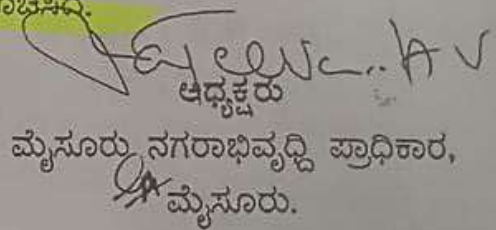 ಅಧ್ಯಕ್ಷರು
ಮೈಸೂರು ನಗರಾಭಿವೃದ್ಧಿ ಪ್ರಾಧಿಕಾರ,
ಮೈಸೂರು.